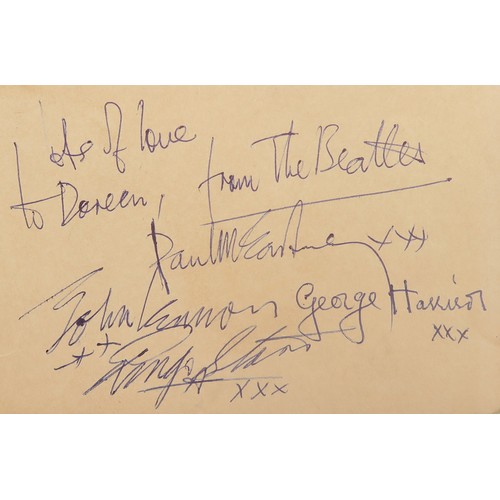 Lots of love
to Doreen, from The Beatles
Paul McCartney xxx
John Lennon George Harrison
xx xxx
Ringo Starr
xxx